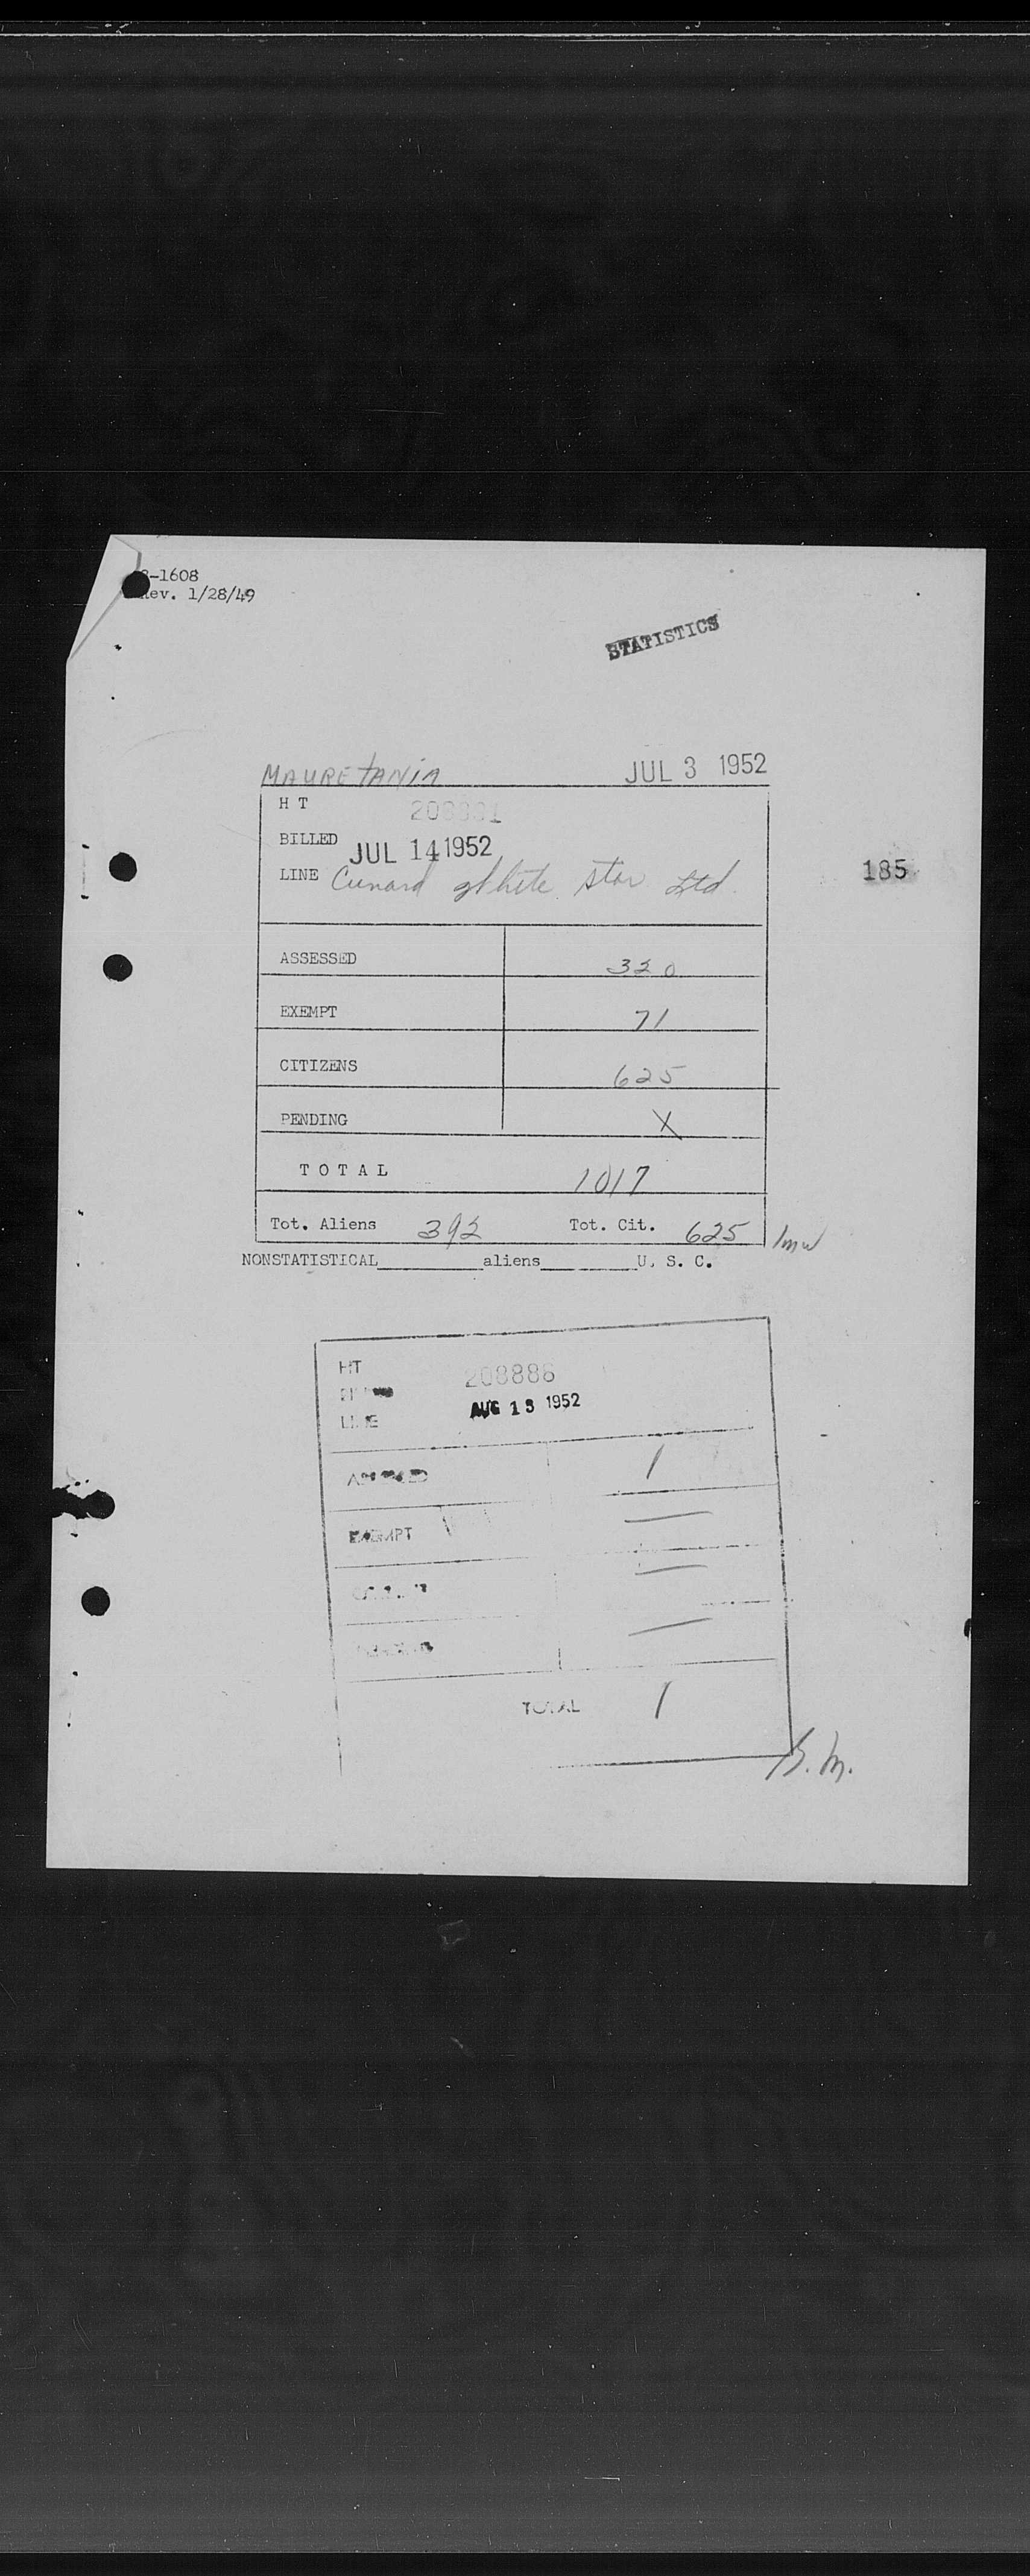 -1608
Rev. 1/28/49
STATISTICS
MAURETANIA JUL 3 1952
H T
BILLED JUL 14 1952
LINE Cunard White Star Ltd.
185
ASSESSED 320
EXEMPT 71
CITIZENS 625
PENDING X
TOTAL 1017
Tot. Aliens 392 Tot. Cit. 625 lmw
NONSTATISTICAL__________aliens_________U. S. C.
HT 208886
AUG 13 1952
LINE
ASSESSED 1
EXEMPT —
—
—
TOTAL 1
B.M.